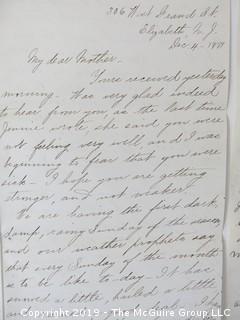 306 West Grand St.
Elizabeth, N. J.
Dec 4 - 1877
My dear Mother -
Yours received yesterday
morning. Was very glad indeed
to hear from you, as the last time
Jennie wrote, she said you were
not feeling very well, and I was
beginning to fear that you were
sick - I hope you are getting
stronger, and not weaker.
We are having the first dark,
damp, rainy Sunday of the season
and our weather prophets say
that every Sunday of the month
is to be like to-day - It has
snowed a little, hailed a little
Copyright 2019 - The McGuire Group LLC